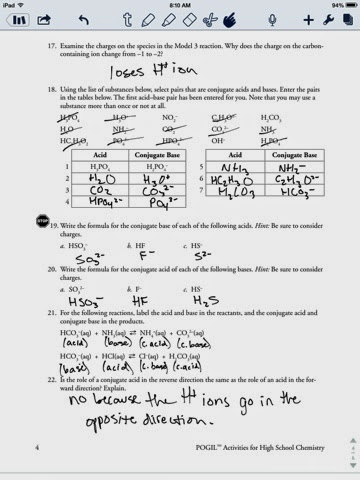 iPad
8:10 AM
94%
17. Examine the charges on the species in the Model 3 reaction. Why does the charge on the carbon-
containing ion change from −1 to −2?
loses H⁺ ion
18. Using the list of substances below, select pairs that are conjugate acids and bases. Enter the pairs
in the tables below. The first acid–base pair has been entered for you. Note that you may use a
substance more than once or not at all.
H₂O NH₂⁻ CO₂ CO₃²⁻ NH₃
HC₂H₃O₂ PO₄³⁻ HPO₄²⁻ OH⁻ H₃PO₄
Acid Conjugate Base Acid Conjugate Base
1 H₃PO₄ H₂PO₄⁻ 5 NH₃ NH₂⁻
2 H₂O H₃O⁺ 6 HC₂H₃O₂ C₂H₃O₂⁻
3 CO₂ CO₃²⁻ 7 H₂CO₃ HCO₃⁻
4 HPO₄²⁻ PO₄³⁻
STOP
19. Write the formula for the conjugate base of each of the following acids. Hint: Be sure to consider
charges.
a. HSO₃⁻ b. HF c. HS⁻
SO₃²⁻ F⁻ S²⁻
20. Write the formula for the conjugate acid of each of the following bases. Hint: Be sure to consider
charges.
a. SO₃²⁻ b. F⁻ c. HS⁻
HSO₃⁻ HF H₂S
21. For the following reactions, label the acid and base in the reactants, and the conjugate acid and
conjugate base in the products.
HCO₃⁻(aq) + NH₃(aq) ⇌ NH₄⁺(aq) + CO₃²⁻(aq)
(acid) (base) (c.acid) (c.base)
HCO₃⁻(aq) + HCl(aq) ⇌ Cl⁻(aq) + H₂CO₃(aq)
(base) (acid) (c.base) (c.acid)
22. Is the role of a conjugate acid in the reverse direction the same as the role of an acid in the for-
ward direction? Explain.
no because the H⁺ ions go in the
opposite direction.
4
POGIL™ Activities for High School Chemistry